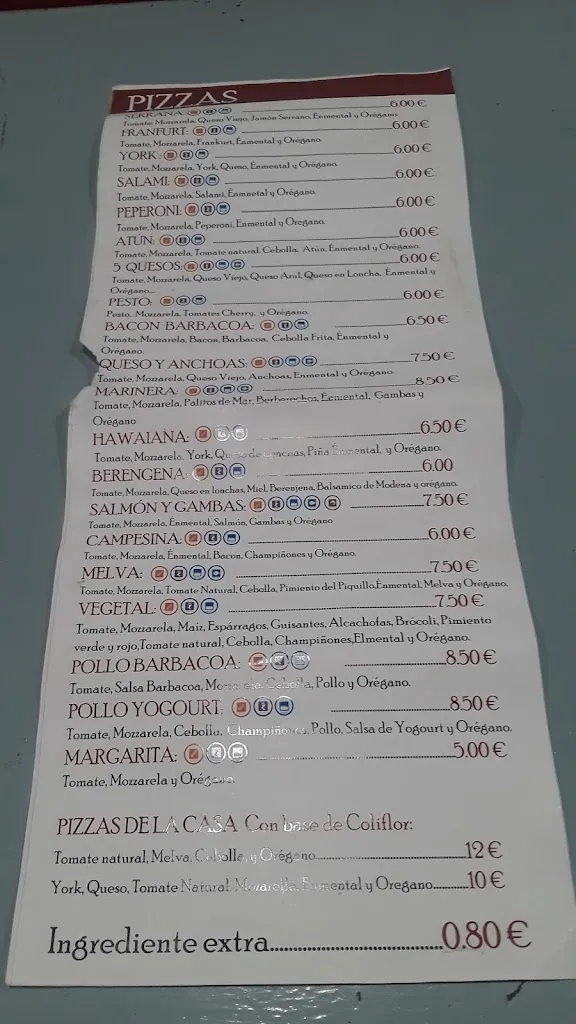 PIZZAS
SERRANA: 6.00 €
Tomate, Mozzarela, Queso Viejo, Jamón Serrano, Enmental y Orégano.
FRANFURT: 6.00 €
Tomate, Mozzarela, Frankurt, Enmental y Orégano.
YORK: 6.00 €
Tomate, Mozzarela, York, Queso, Enmental y Orégano.
SALAMI: 6.00 €
Tomate, Mozzarela, Salami, Enmnetal y Orégano.
PEPERONI: 6.00 €
Tomate, Mozzarela, Peperoni, Enmental y Orégano.
ATÚN: 6.00 €
Tomate, Mozzarela, Tomate natural, Cebolla, Atún, Enmental y Orégano.
5 QUESOS: 6.00 €
Tomate, Mozzarela, Queso Viejo, Queso Azul, Queso en Loncha, Enmental y
Orégano...
PESTO: 6.00 €
Pesto, Mozzarela, Tomates Cherry, y Orégano.
BACON BARBACOA: 6.50 €
Tomate, Mozzarela, Bacon, Barbacoa, Cebolla Frita, Enmental y
Orégano.
QUESO Y ANCHOAS: 7.50 €
Tomate, Mozzarela, Queso Viejo, Anchoas, Enmental y Orégano.
MARINERA: 8.50 €
Tomate, Mozzarela, Palitos de Mar, Berberechos, Enmental, Gambas y
Orégano
HAWAIANA: 6.50 €
Tomate, Mozarela, York, Queso de Lonchas, Piña Enmental, y Orégano.
BERENGENA 6.00
Tomate, Mozzarela, Queso en lonchas, Miel, Berenjena, Balsamico de Modena y orégano.
SALMÓN Y GAMBAS: 7.50 €
Tomate, Mozzarela, Enmental, Salmón, Gambas y Orégano
CAMPESINA: 6.00 €
Tomate, Mozzarela, Enmental, Bacon, Champiñones y Orégano.
MELVA: 7.50 €
Tomate, Mozzarela, Tomate Natural, Cebolla, Pimiento del Piquillo, Enmental, Melva y Orégano.
VEGETAL: 7.50 €
Tomate, Mozzarela, Maiz, Espárragos, Guisantes, Alcachofas, Brócoli, Pimiento
verde y rojo, Tomate natural, Cebolla, Champiñones, Elmental y Orégano.
POLLO BARBACOA: 8.50 €
Tomate, Salsa Barbacoa, Mozzarela, Cebolla, Pollo y Orégano.
POLLO YOGOURT: 8.50 €
Tomate, Mozzarela, Cebolla, Champiñones, Pollo, Salsa de Yogourt y Orégano.
MARGARITA: 5.00 €
Tomate, Mozzarela y Orégano.
PIZZAS DE LA CASA Con base de Coliflor:
Tomate natural, Melva, Cebolla, y Orégano 12 €
York, Queso, Tomate Natural, Mozarella, Enmental y Oregano 10 €
Ingrediente extra 0.80 €